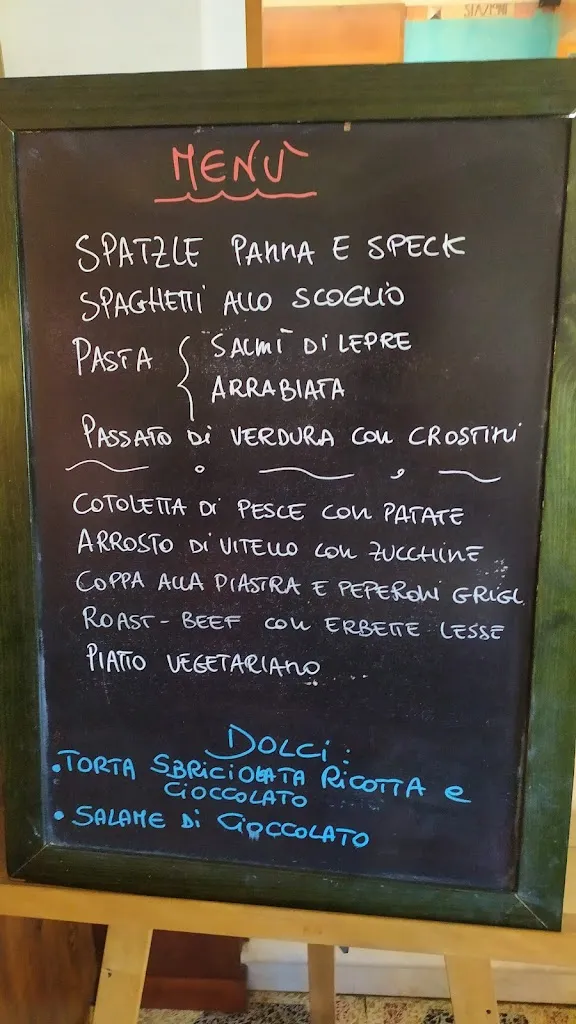 STAZIONI
MENÙ
SPATZLE PANNA E SPECK
SPAGHETTI ALLO SCOGLIO
PASTA { SALMÌ DI LEPRE
ARRABIATA
PASSATO DI VERDURA CON CROSTINI
COTOLETTA DI PESCE CON PATATE
ARROSTO DI VITELLO CON ZUCCHINE
COPPA ALLA PIASTRA E PEPERONI GRIGL
ROAST-BEEF CON ERBETTE LESSE
PIATTO VEGETARIANO
DOLCI:
• TORTA SBRICIOLATA RICOTTA e
CIOCCOLATO
• SALAME DI CIOCCOLATO